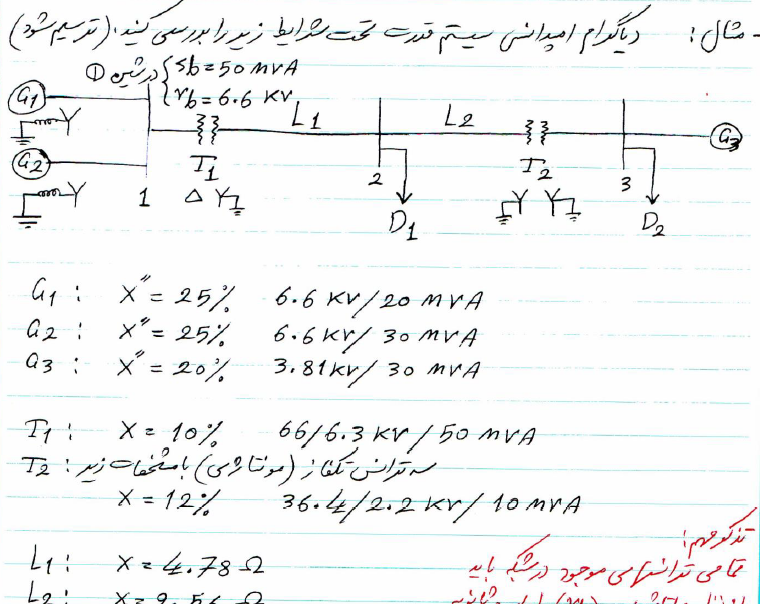 - مثال: دیاگرام امپدانسی سیستم قدرت تحت شرایط زیر را بررسی کنید. (ترسیم شود)
در شین ① { Sb = 50 MVA
Vb = 6.6 KV
G1
L1 L2
G3
G2
T1
T2
1 Δ Y 2 Y Y 3
D1 D2
G1 : X" = 25% 6.6 KV/20 MVA
G2 : X" = 25% 6.6 KV/30 MVA
G3 : X" = 20% 3.81 KV/30 MVA
T1 : X = 10% 66/6.3 KV/50 MVA
T2 : سه ترانس تکفاز (مونتاژی) با مشخصات زیر
X = 12% 36.4/2.2 KV/10 MVA
تذکر مهم:
L1 : X = 4.78 Ω
تمامی ترانسهای موجود در شبکه باید
L2 : X = 9.56 Ω